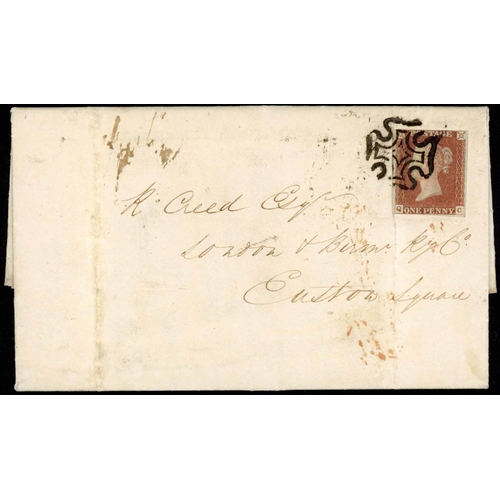 POSTAGE
R. Creed Esqr
London & Birm. Ry Co
Euston Square
ONE PENNY